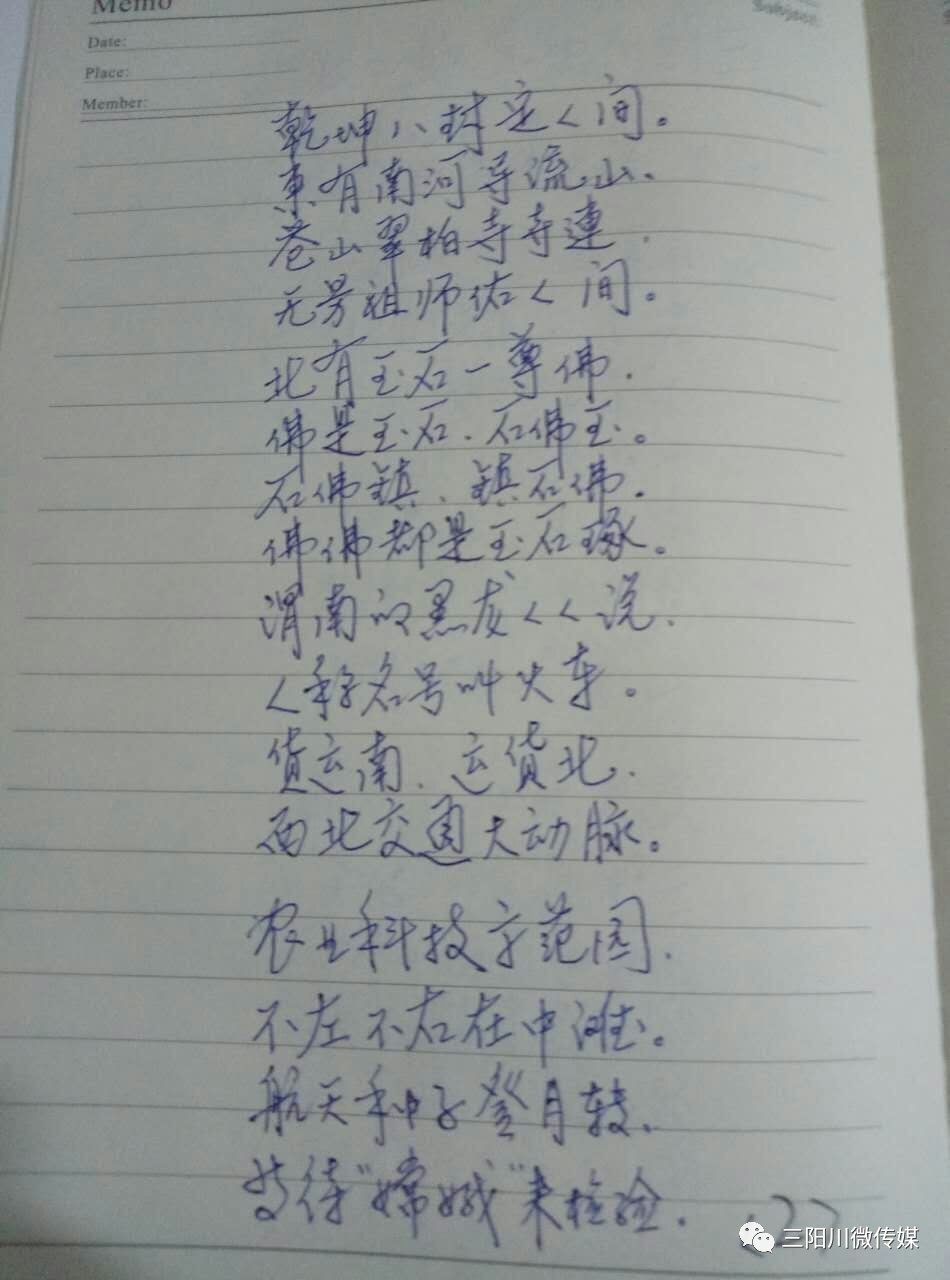 Memo
Subject:
Date:
Place:
Member:
乾坤八封定人间。
東有南河导流山、
苍山翠柏寺寺連.
无量祖师佑人间。
北有玉石一尊佛.
佛是玉石.石佛玉。
石佛鎮、鎮石佛.
佛佛都是玉石琢。
渭南的黑龙人人说.
人称名号叫火车。
货运南、运货北.
西北交通大动脉。
农业科技示范园.
不左不右在中滩。
航天种子登月转、
技待"嫦娥"来检验.
三阳川微传媒